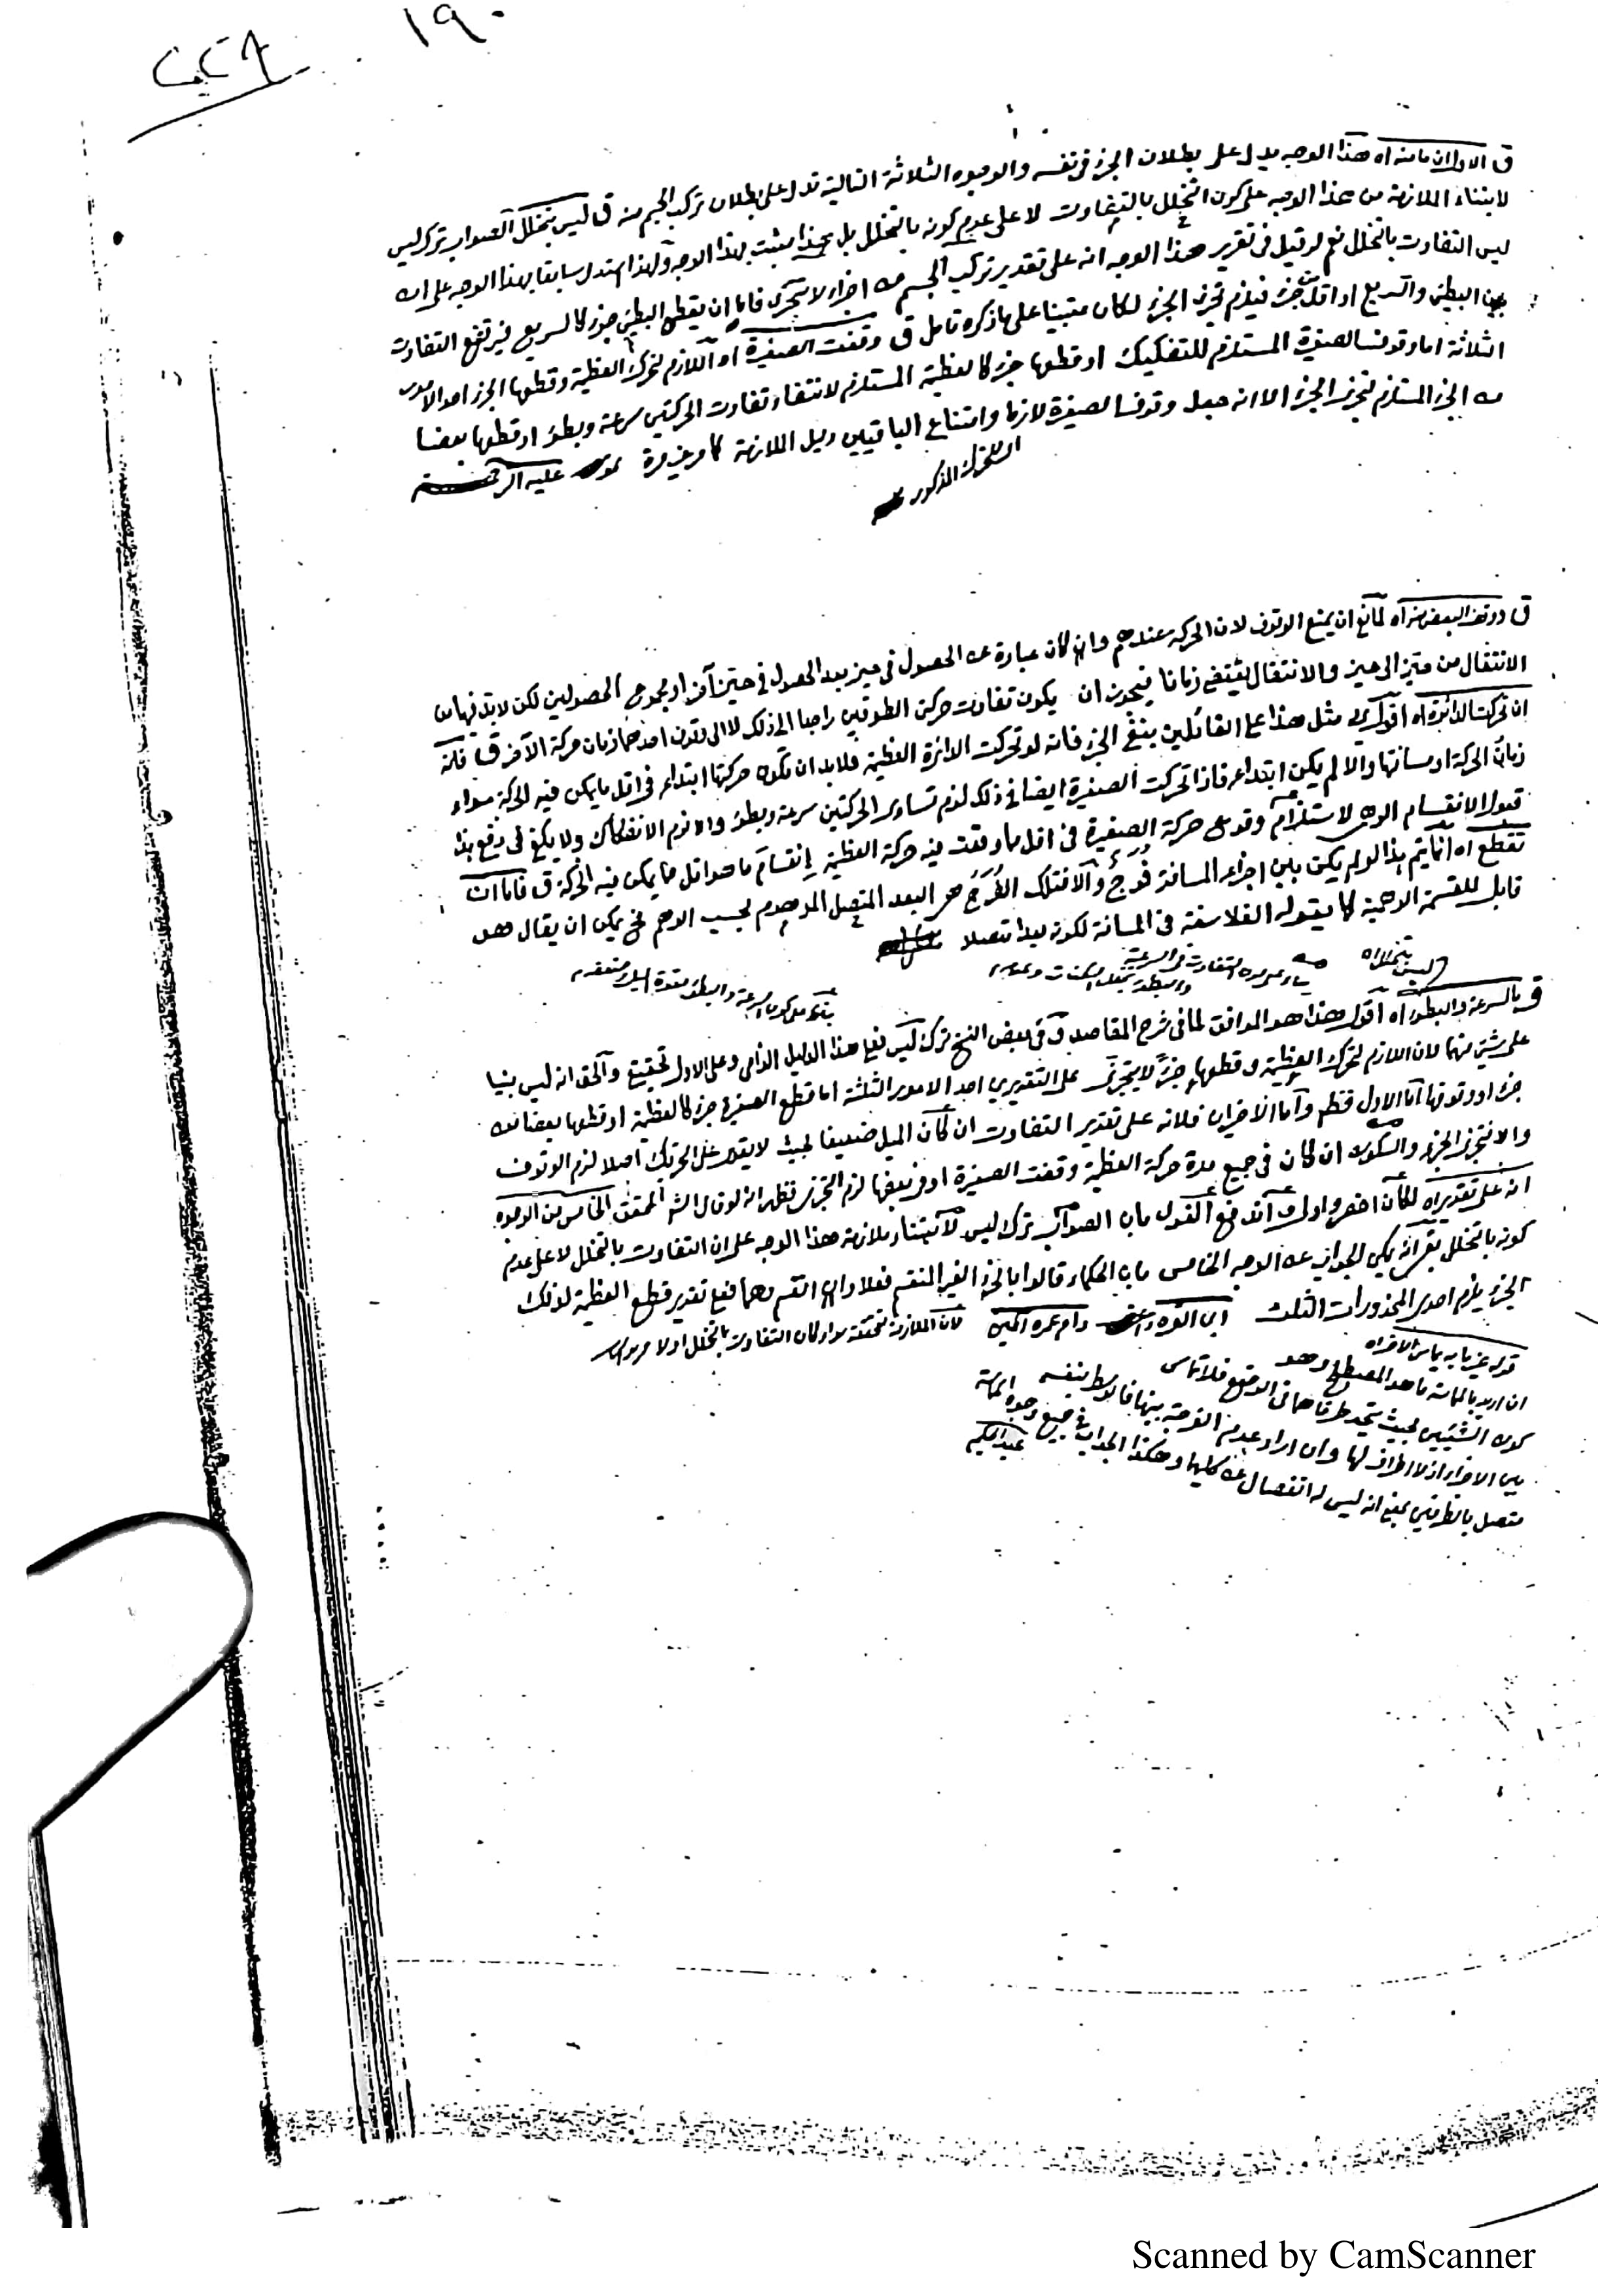 ١٩٠
٢٢٦
ق الاول ان ما منه اه هذا الوجه يدل على بطلان الجزء في نفسه والوجوه الثلاثة التالية تدل على بطلان تركب الجسم منه ق ليس بتخلل الصواب ترك ليس
لابتناء الملازمة من هذا الوجه على كون التخلل بالتفاوت لا على عدم كونه بالتخلل بل هذا مثبت بهذا الوجه ولهذا استدل سابقا بهذا الوجه على ان
ليس التفاوت بالتخلل نعم لو قيل في تقرير هذا الوجه انه على تقدير تركب الجسم من اجزاء لا تتجزى فاما ان يقطع البطئ جزء كالسريع فيرتفع التفاوت
بين البطئ والسريع او اقل من جزء فيلزم تجزى الجزء لكان مبتنيا على ما ذكره تامل ق وقفت الصغيرة اه اللازم لتحرك العظيمة وقطعها الجزء احد الامور
الثلاثة اما وقوف الصغيرة المستلزم للتفكيك او قطعها جزء كالعظيمة المستلزم لانتفاء تفاوت الحركتين سرعة وبطئ او قطعها بعضا
من الجزء المستلزم لتجزى الجزء الا انه جعل وقوف الصغيرة لازما وامتناع الباقيين دليل الملازمة كما عليه الرحمة
المذكور
ق ووقف البعض اه لمانع ان يمنع الوقوف لان الحركة عندهم وان كان عبارة عن الحصول في حيز بعد الحصول في حيز آخر او مجموع الحصولين لكن لا بد فيها من
الانتقال من حيز الى حيز والانتقال يقتضي زمانا فيجوز ان يكون تفاوت حركتي الطوقين راجعا الى ذلك لا الى وقوف احدهما زمان حركة الآخر ق فلانه
ان تحركت الدائرة اه اقول مثل هذا على القائلين بنفي الجزء فانه لو تحركت الدائرة العظيمة فلا بد ان تكون حركتها ابتداء في اقل ما يمكن فيه الحركة سواء
زمان الحركة او مسافتها والا لم يكن ابتداء فاذا تحركت الصغيرة ايضا في ذلك لزم تساوى الحركتين سرعة وبطئ والا لزم الانفكاك ولا يكفي في دفع هذا
قبول الانقسام الوهمي لاستلزام وقوع حركة الصغيرة في اقل ما وقعت فيه حركة العظيمة انقسام ما هو اقل ما يمكن فيه الحركة ق فاما ان
تقطع اه انما يتم هذا لو لم يكن بين اجزاء المسافة فرج والا فتلك الفرج هو البعد المتصل الموهوم بحسب الوهم فح يمكن ان يقال هو
قابل للقسمة الوهمية كما يقوله الفلاسفة في المسافة لكونه بعدا متصلا
ليس بتخلل اه
ق بالسرعة والبطوء اه اقول هذا هو الموافق لما في شرح المقاصد وفي بعض النسخ ترك ليس فعلى هذا الدليل الزامي وعلى الاول تحقيقي والحق انه ليس بنيا
على شئ منهما لان اللازم لتحرك العظيمة وقطعها جزء لا يتجزى على التقديرين احد الامور الثلثة اما قطع الصغيرة جزء كالعظيمة او قطعها بعضا منه
جزء او وقوفها اما الاول فظاهر واما الاخيران فلانه على تقدير التفاوت ان كان الميل ضعيفا بحيث لا يقدر على التحريك اصلا لزم الوقوف
والا فتجزى الجزء والسكون ان كان في جميع مدة حركة العظيمة وقفت الصغيرة او في بعضها لزم التجزى فظهر انه لو قال الش المحقق الخامس من الوجوه
انه على تقديره لكان اخصر واولى واندفع القول بان الصواب ترك ليس لابتناء ملازمة هذا الوجه على ان التفاوت بالتخلل لا على عدم
كونه بالتخلل بقى انه يمكن الجواب عن الوجه الخامس بان الحكماء قالوا بالجزء الغير المنقسم فعلا وان انقسم وهما فعلى تقدير قطع العظيمة لذلك
الجزء يلزم احدى المحذورات الثلث دام عمره لان الملازمة متحققة سواء كان التفاوت بالتخلل اولا
قوله غير ما به يماس الآخر اه
ان اريد بالمماسة ما هو المصطلح وهو
كون الشيئين بحيث يتحد طرفاهما في الوضع فلا تماس
بين الاجزاء اذ لا اطراف لها وان اراد عدم الفرجة بينها فالوسط بنفسه
متصل بالطرفين بمعنى انه ليس له انفصال عن كليهما وهكذا الجواب في جميع وجوه المماسة
عبد الحكيم
Scanned by CamScanner